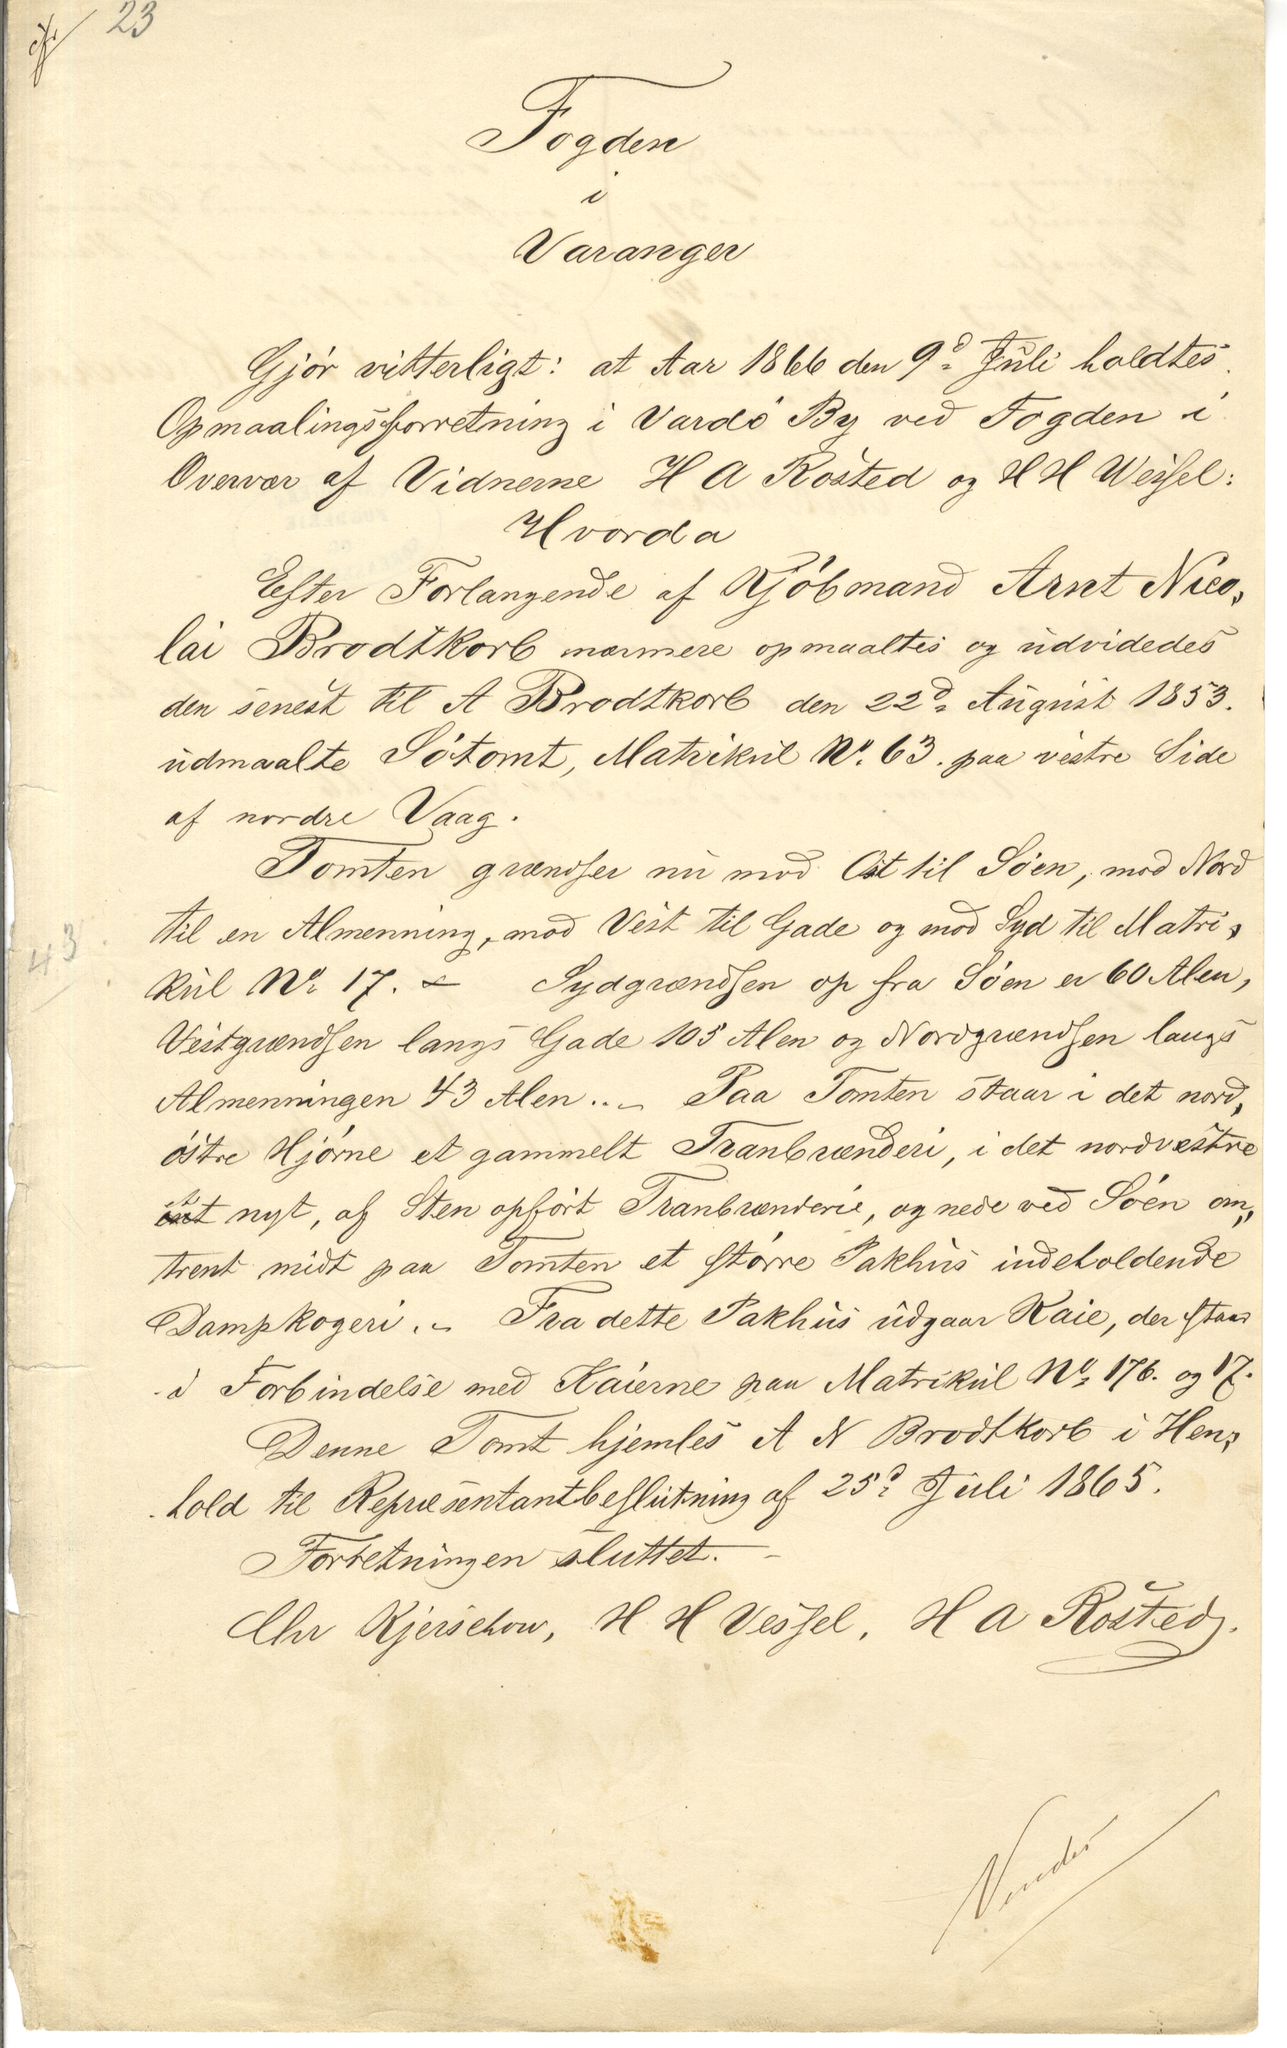 23
Fogden
i
Varanger
Gjör vitterligt: at Aar 1866 den 9d Juli holdtes
Opmaalingsforretning i Vardö By ved Fogden i
Overvær af Vidnerne H A Rosted og H H Wessel:
Hvorda
Efter Forlangende af Kjöbmand Arnt Nico„
lai Brodtkorb nærmere opmaaltes og udvidedes
den senest til A Brodtkorb den 22d August 1853.
udmaalte Sötomt, Matrikul No. 63. paa vestre Side
af nordre Vaag.
Tomten grændser nu mod Ost til Söen, mod Nord
til en Almenning, mod Vest til Gade og mod Syd til Matri„
kul No. 17. – Sydgrændsen op fra Söen er 60 Alen,
Vestgrændsen langs Gade 105 Alen og Nordgrændsen langs
Almenningen 43 Alen. – Paa Tomten staar i det nord„
östre Hjörne et gammelt Tranbrænderi, i det nordvestre
et nyt, af Sten opfört Tranbrænderie, og nede ved Söen om„
trent midt paa Tomten et större Pakhus indeholdende
Dampkogeri. – Fra dette Pakhus udgaar Kaie, der staar
i Forbindelse med Kaierne paa Matrikul No. 176. og 17.
Denne Tomt hjemles A N Brodtkorb i Hen„
hold til Repræsentantbeslutning af 25d Juli 1865.
Forretningen sluttet. –
Chr Kjerschow, H H Vessel, H A Rosted.
Vendes
43